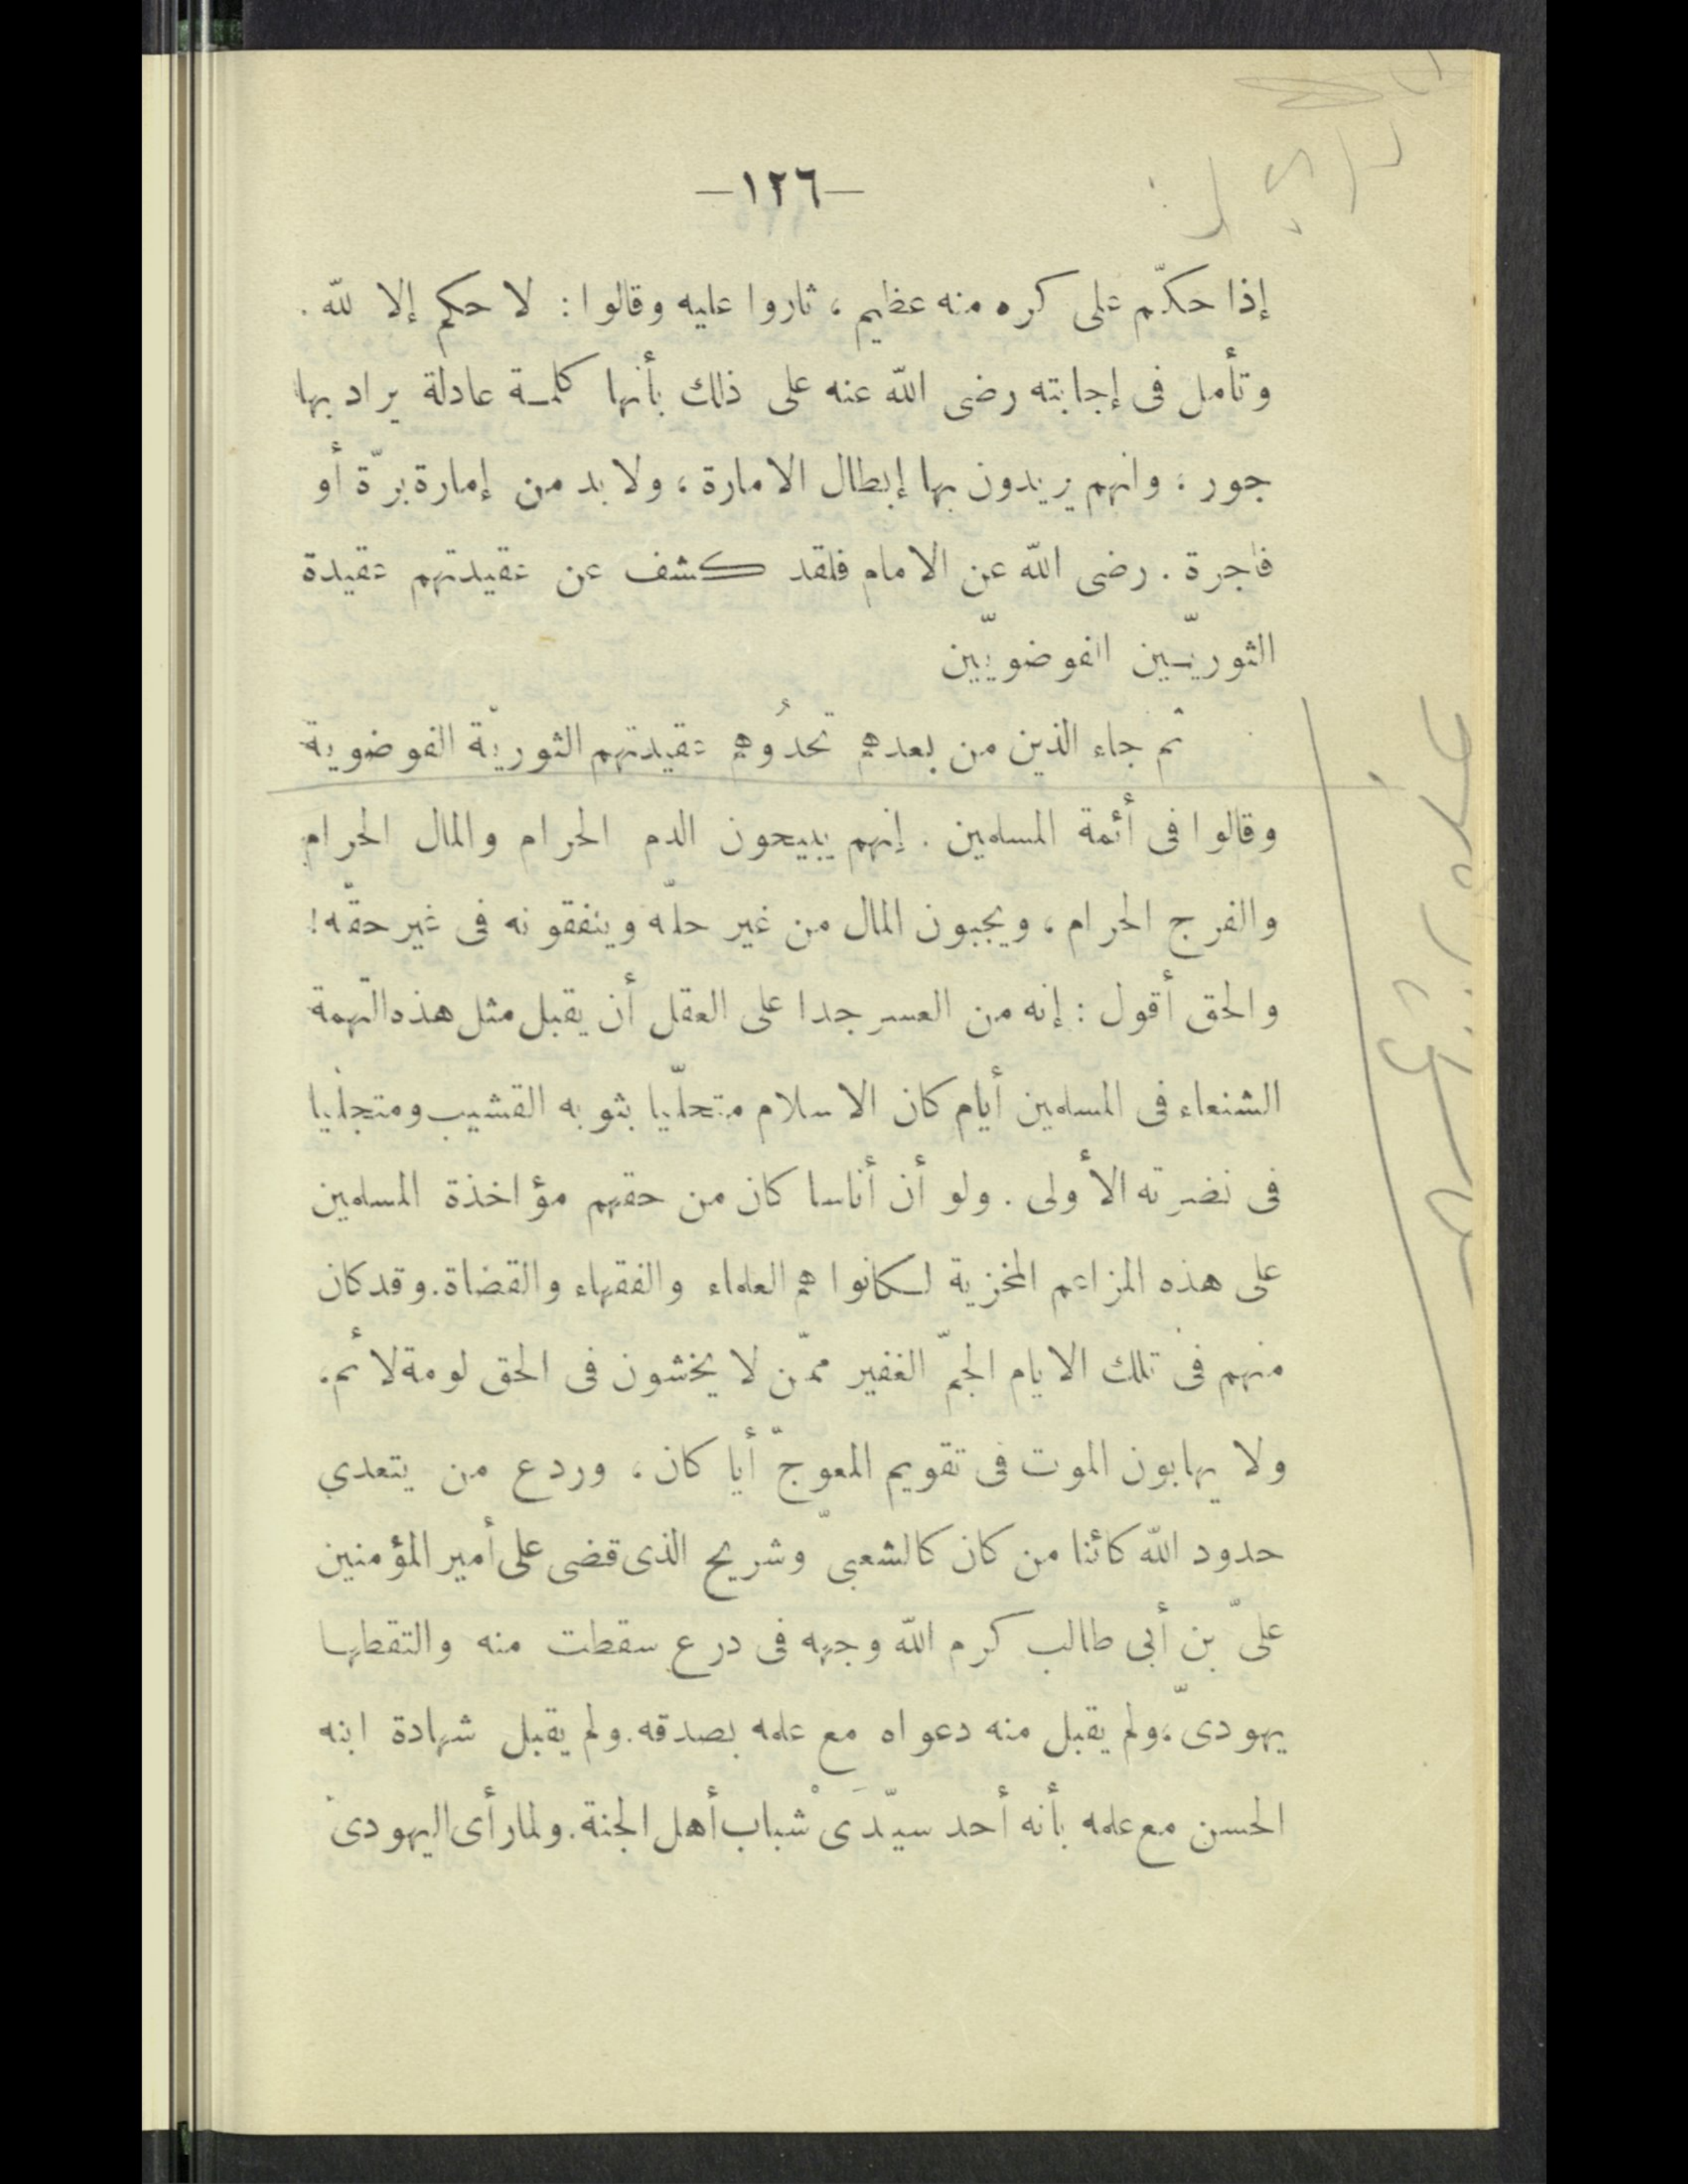 —١٢٦—
إذا حكّم على كره منه عظيم ، ثاروا عليه وقالوا : لا حكم إلا لله .
وتأمل فى إجابته رضى الله عنه على ذلك بأنها كلمة عادلة يراد بها
جور ؛ وانهم يريدون بها إبطال الامارة ، ولا بد من إمارة برّة أو
فاجرة . رضى الله عن الامام فلقد كشف عن عقيدتهم عقيدة
الثوريّين الفوضويّين
ثم جاء الذين من بعدهم تحدُوهم عقيدتهم الثوريّة الفوضوية
وقالوا فى أئمة المسلمين . إنهم يبيحون الدم الحرام والمال الحرام
والفرج الحرام ، ويجبون المال من غير حلّه وينفقونه فى غير حقّه !
والحق أقول : إنه من العسر جدا على العقل أن يقبل مثل هذه التّهمة
الشنعاء فى المسلمين أيام كان الاسلام متحلّيا بثوبه القشيب ومتجلّيا
فى نضرته الأولى . ولو أن أناسا كان من حقهم مؤاخذة المسلمين
على هذه المزاعم المخزية لكانوا هم العلماء والفقهاء والقضاة . وقد كان
منهم فى تلك الايام الجمّ الغفير ممّن لا يخشون فى الحق لومة لائم .
ولا يهابون الموت فى تقويم المعوجّ أيا كان ، وردع من يتعدي
حدود الله كائنا من كان كالشعبىّ وشريح الذى قضى على أمير المؤمنين
علىّ بن أبى طالب كرم الله وجهه فى درع سقطت منه والتقطها
يهودىّ ؛ ولم يقبل منه دعواه مع علمه بصدقه . ولم يقبل شهادة ابنه
الحسن مع علمه بأنه أحد سيّدَىْ شباب أهل الجنة . ولما رأى اليهودى